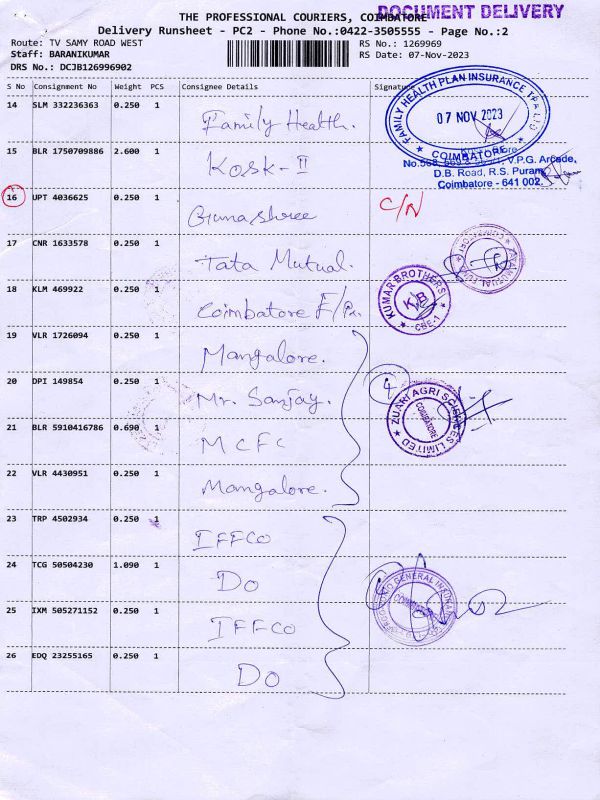 DOCUMENT DELIVERY
THE PROFESSIONAL COURIERS, COIMBATORE
Delivery Runsheet - PC2 - Phone No.:0422-3505555 - Page No.:2
Route: TV SAMY ROAD WEST
RS No.: 1269969
Staff: BARANIKUMAR
RS Date: 07-Nov-2023
DRS No.: DCJB126996902
S No Consignment No Weight PCS Consignee Details Signature
14 SLM 332236363 0.250 1 Family Health.
FAMILY HEALTH PLAN INSURANCE TPA LTD
07 NOV 2023
★ COIMBATORE ★
15 BLR 1750709886 2.600 1 Kosk-II
V.P.G. Arcade,
D.B. Road, R.S. Puram,
Coimbatore - 641 002.
16 UPT 4036625 0.250 1 Gunashree C/N
17 CNR 1633578 0.250 1 Tata Mutual.
18 KLM 469922 0.250 1 Coimbatore
KUMAR BROTHERS
KB
CBE-1
19 VLR 1726094 0.250 1 Mangalore.
20 DPI 149854 0.250 1 Mr. Sanjay. 4
ZUARI AGRI SCIENCES LIMITED
COIMBATORE
21 BLR 5910416786 0.690 1 MCFC
22 VLR 4430951 0.250 1 Mangalore.
23 TRP 4502934 0.250 1 IFFCO
24 TCG 50504230 1.090 1 Do
25 IXM 505271152 0.250 1 IFFCO
26 EDQ 23255165 0.250 1 Do